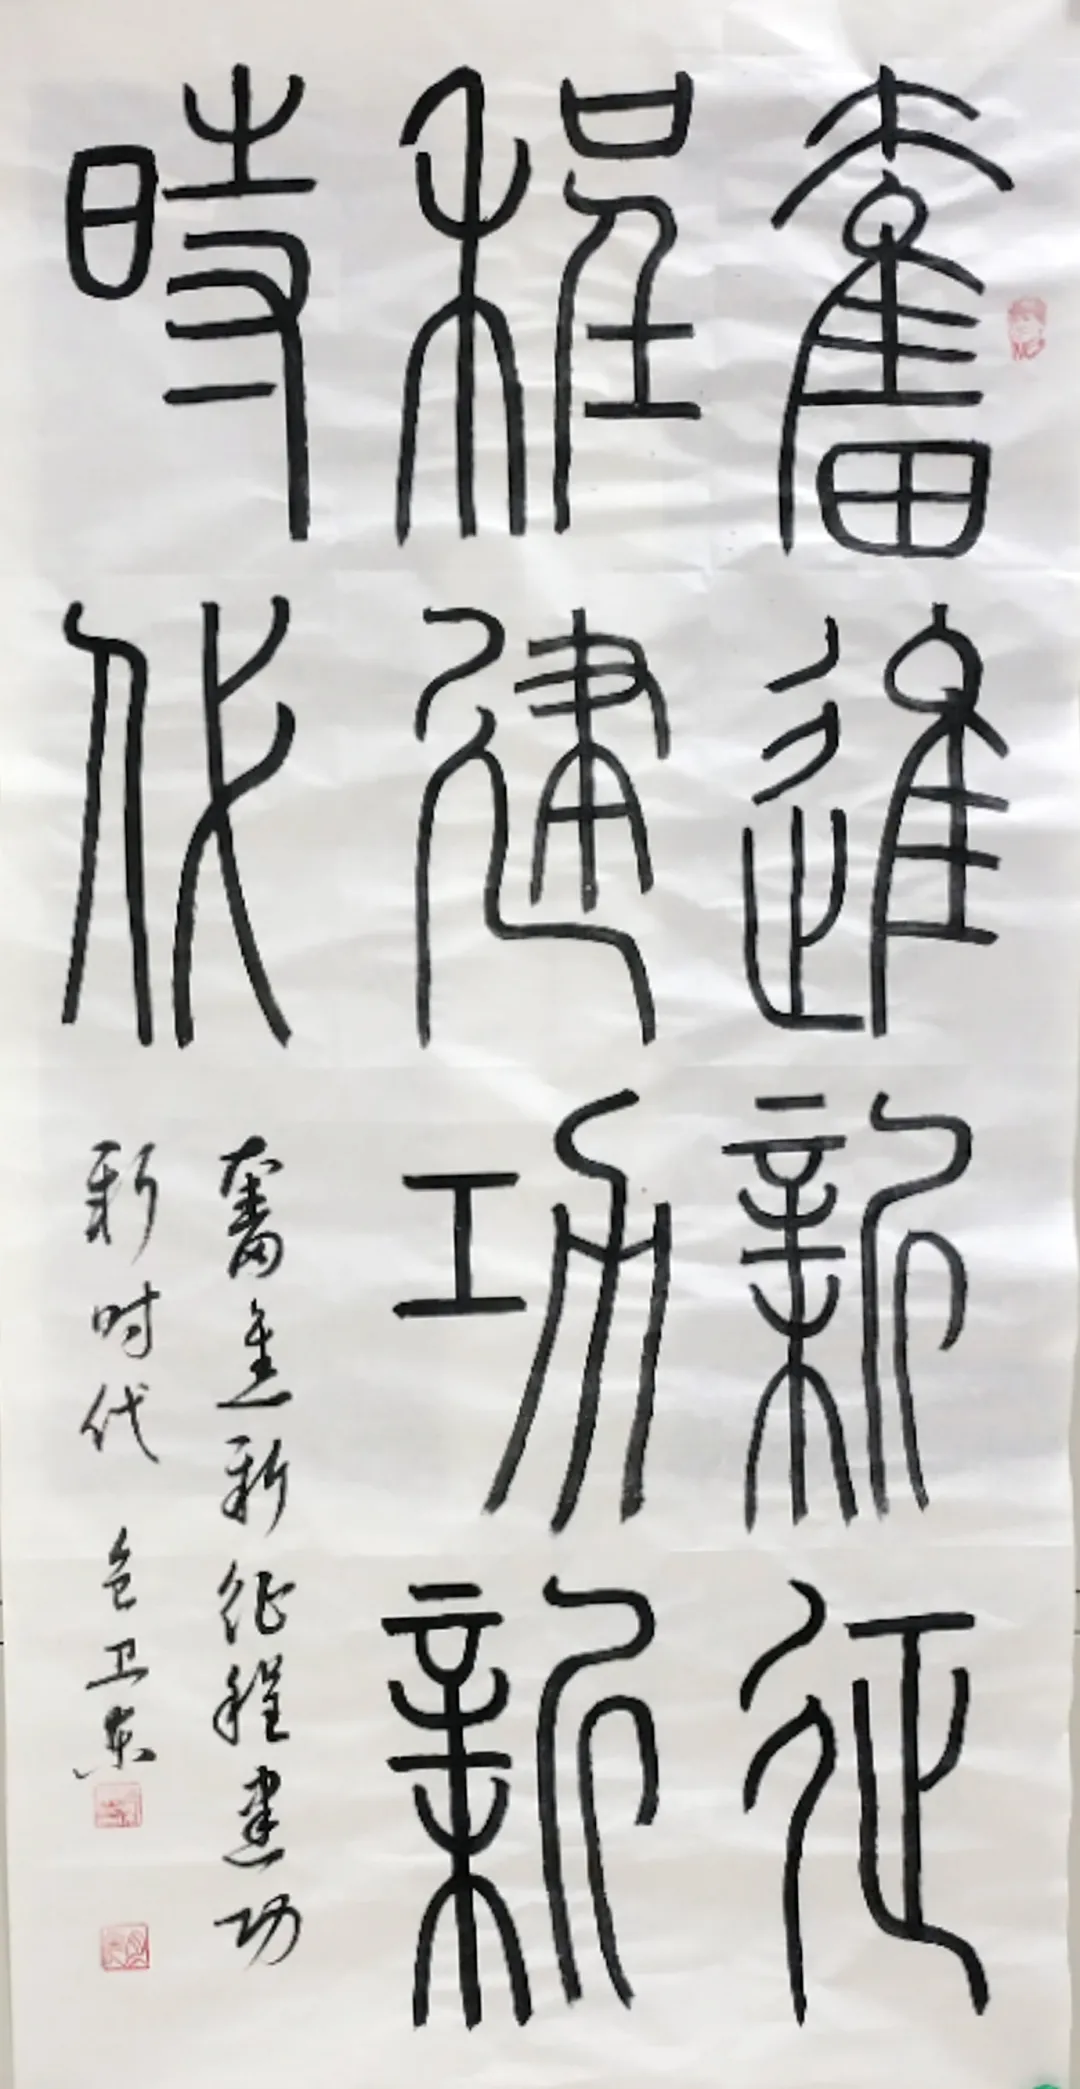 奮進新征
程建功新
時代
奮進新征程建功
新时代 包卫东